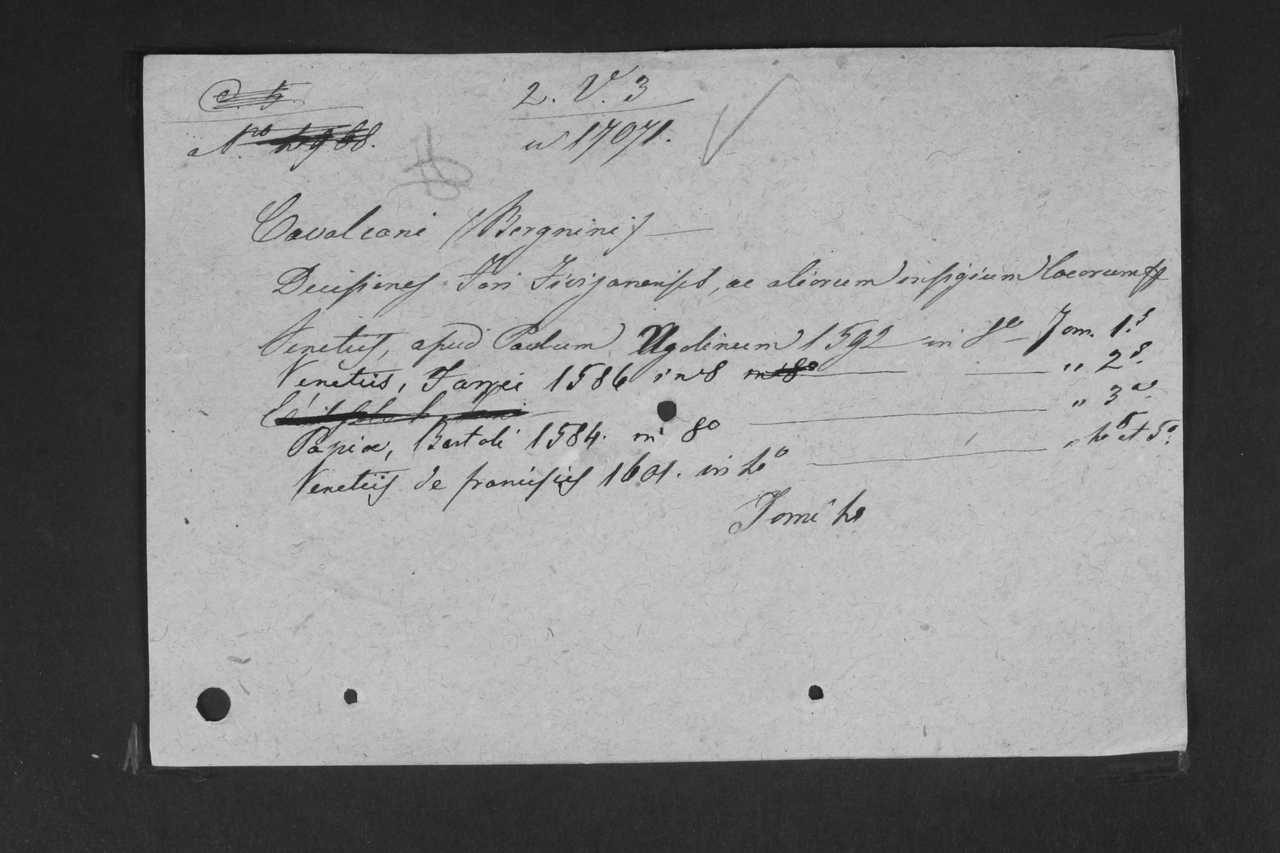 2. V. 3
Nro 4968.
w 17071.
Cavalcani /Bergnini/
Decisiones Fori Fivizanensis, ac aliorum insigium locorum
Venetiis, apud Paulum Ugolinum 1592 in 8o Tom. 1.s
Venetiis, 1586 in 8 in 8o " 2s.
Papiae, Bartoli 1584. in 8o " 3us
Venetiis de franciscis 1601. in 4o " 4o et 5o.
Tomi 4